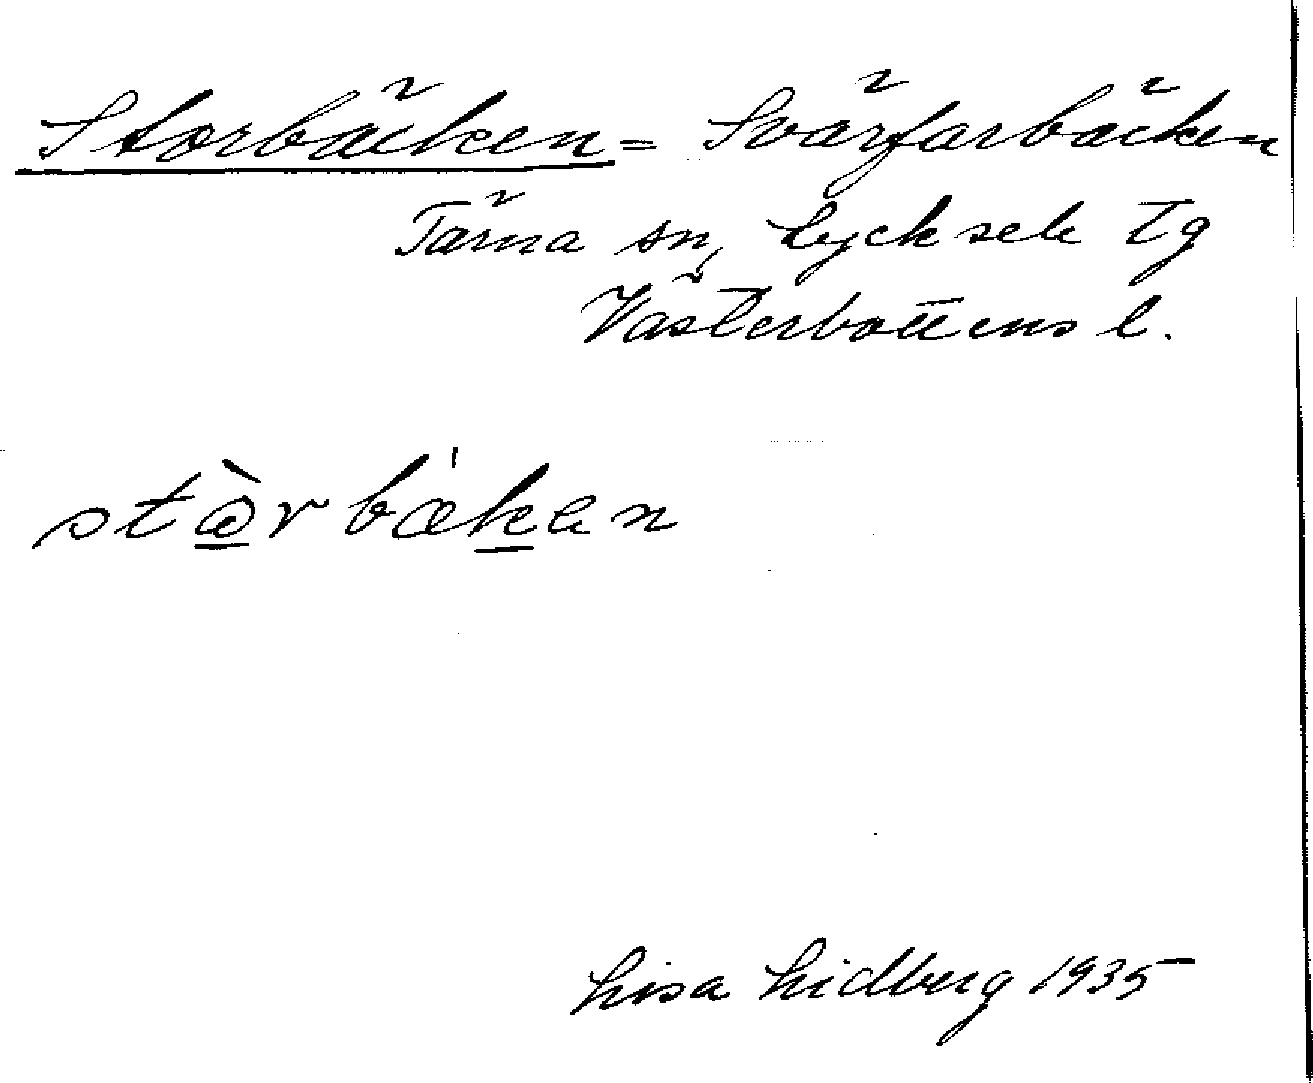 Storbäcken = Svärfarbäcken
Tärna sn, Lycksele tg
Västerbottens l.
stɷ̀rbæ'ken
Lisa Lidberg 1935